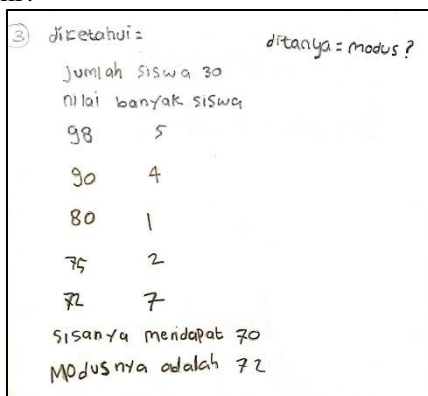 3 diketahui =
ditanya = modus ?
jumlah siswa 30
nilai banyak siswa
98 5
90 4
80 1
75 2
72 7
sisanya mendapat 70
Modusnya adalah 72